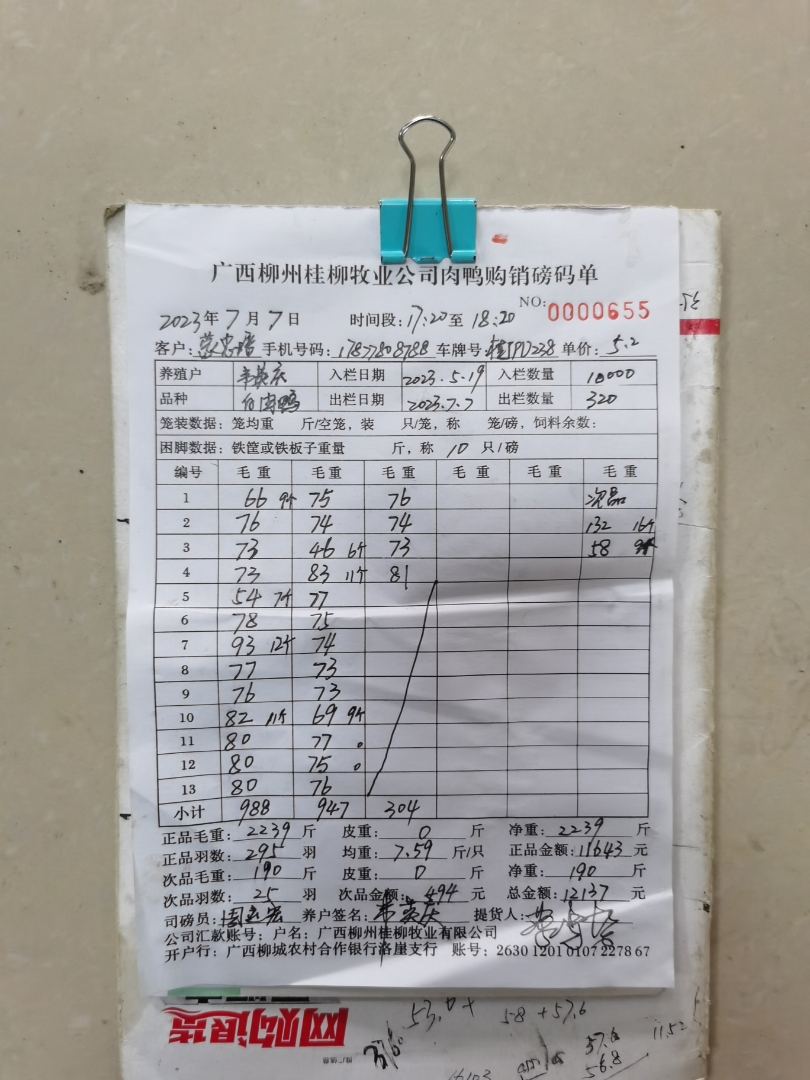 广西柳州桂柳牧业公司肉鸭购销磅码单
NO: 0000655
2023年7月7日 时间段:17:20至18:20
客户: 手机号码:17877808788 车牌号: 单价:5.2
养殖户 韦英庆 入栏日期 2023.5.19 入栏数量 10000
品种 白肉鸭 出栏日期 2023.7.7 出栏数量 320
笼装数据:笼均重 斤/空笼,装 只/笼,称 笼/磅,饲料余数:
困脚数据:铁筐或铁板子重量 斤,称 10 只/磅
编号 毛重 毛重 毛重 毛重 毛重 毛重
1 66 9个 75 76 次品
2 76 74 74 132 16个
3 73 46 6个 73 58 9个
4 73 83 11个 81
5 54 7个 77
6 78 75
7 93 12个 74
8 77 73
9 76 73
10 82 11个 69 9个
11 80 77
12 80 75
13 80 76
小计 988 947 304
正品毛重:2239斤 皮重:0斤 净重:2239斤
正品羽数:295羽 均重:7.59斤/只 正品金额:11643元
次品毛重:190斤 皮重:0斤 净重:190斤
次品羽数:25羽 次品金额:494元 总金额:12137元
司磅员: 养户签名:韦英庆 提货人:
公司汇款账号:户名:广西柳州桂柳牧业有限公司
开户行:广西柳城农村合作银行洛崖支行 账号:2630 1201 0107 2278 67
网购退货
53.0+ 58+57.6
57.6
56.8
11.52